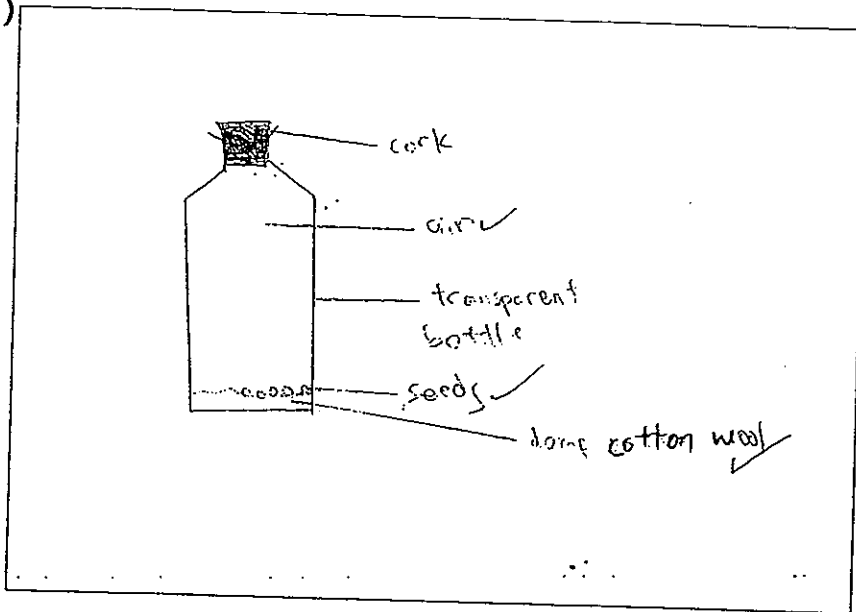 )
cork
air
transparent
bottle
seeds
damp cotton wool